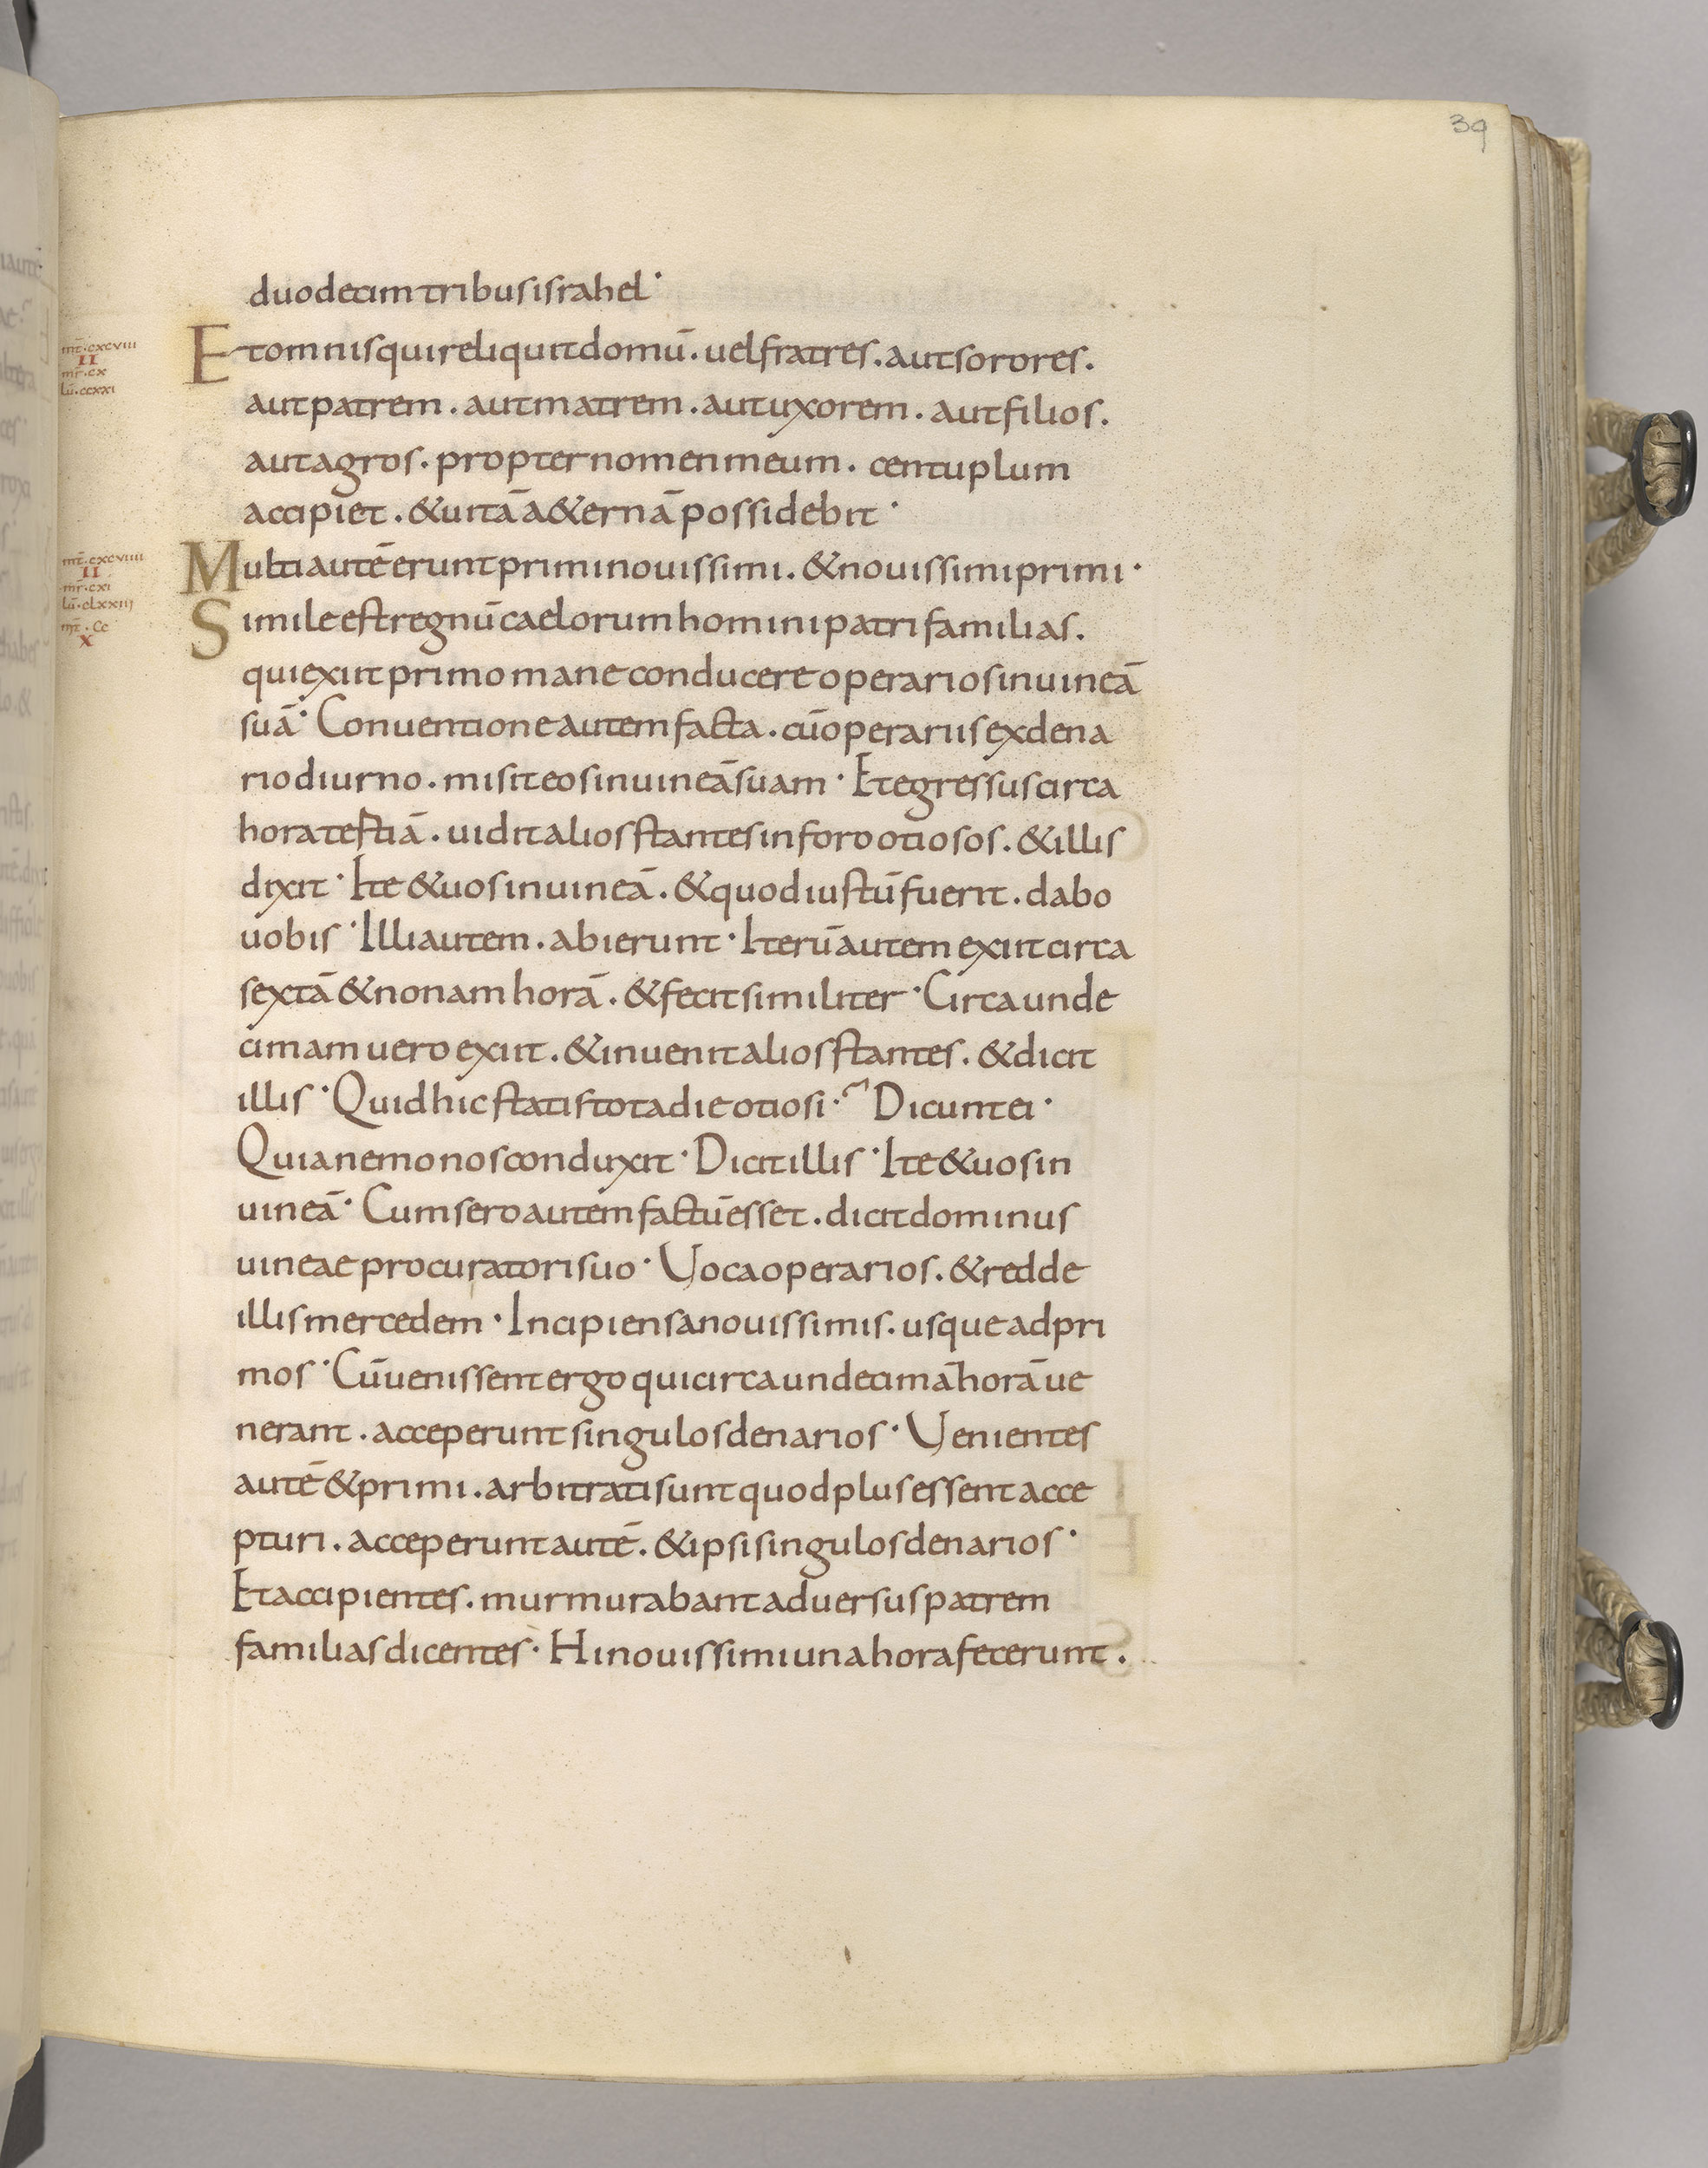 39
duodecim tribus israhel·
mt̄·cxcviii
II
mr̄·cx
lū·ccxxi
Et omnis qui reliquit domū. uel fratres. aut sorores.
aut patrem. aut matrem. aut uxorem. aut filios.
aut agros. propter nomen meum. centuplum
accipiet. & uitā a&ernā possidebit·
mt̄·cxcviiii
II
mr̄·cxi
lū·clxxiii
Multi autē erunt primi nouissimi. & nouissimi primi·
mt̄·cc
X
Simile est regnū caelorum homini patri familias.
qui exiit primo mane conducere operarios in uineā
suā· Conuentione autem facta. cū operariis ex dena
rio diurno. misit eos in uineā suam· Et egressus circa
hora testiā. uidit alios stantes in foro otiosos. & illis
dixit· Ite & uos in uineā. & quod iustū fuerit. dabo
uobis· Illi autem. abierunt· Iterū autem exiit circa
sextā & nonam horā. & fecit similiter· Circa unde
cimam uero exiit. & inuenit alios stantes. & dicit
illis· Quid hic statis tota die otiosi·? Dicunt ei·
Quia nemo nos conduxit· Dicit illis· Ite & uos in
uineā· Cum sero autem factū esset. dicit dominus
uineae procuratori suo· Uoca operarios. & redde
illis mercedem· Incipiens a nouissimis. usque ad pri
mos· Cū uenissent ergo qui circa undecimā horā ue
nerant. acceperunt singulos denarios· Uenientes
autē & primi. arbitrati sunt quod plus essent acce
pturi. acceperunt autē. & ipsi singulos denarios·
Et accipientes. murmurabant aduersus patrem
familias dicentes· Hi nouissimi una hora fecerunt.